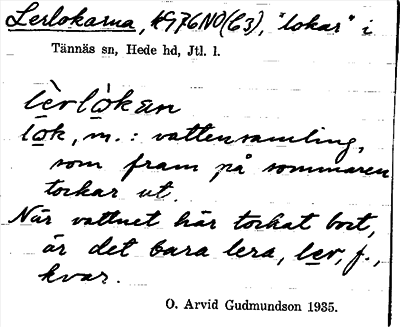 Lerlokarna, H976NO(C3), "lokar" i
Tännäs sn, Hede hd, Jtl. l.
lèrlòkan
lok, m.: vattensamling,
som fram på sommaren
torkar ut.
När vattnet här torkat bort,
är det bara lera, ler, f.,
kvar.
O. Arvid Gudmundson 1935.